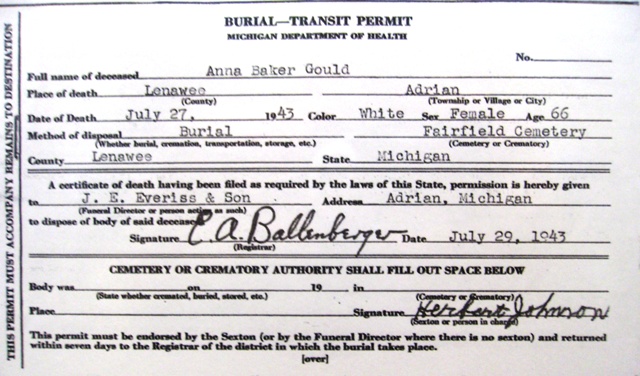 BURIAL—TRANSIT PERMIT
MICHIGAN DEPARTMENT OF HEALTH
No.
Full name of deceased Anna Baker Gould
Place of death Lenawee Adrian
(County) (Township or Village or City)
Date of Death July 27, 1943 Color White Sex Female Age 66
Method of disposal Burial Fairfield Cemetery
(Whether burial, cremation, transportation, storage, etc.) (Cemetery or Crematory)
County Lenawee State Michigan
A certificate of death having been filed as required by the laws of this State, permission is hereby given
to J. E. Everiss & Son Address Adrian, Michigan
(Funeral Director or person acting as such)
to dispose of body of said deceased
Signature C. A. Ballenberger Date July 29, 1943
(Registrar)
CEMETERY OR CREMATORY AUTHORITY SHALL FILL OUT SPACE BELOW
Body was on 19 in
(State whether cremated, buried, stored, etc.) (Cemetery or Crematory)
Place Signature Herbert Johnson
(Sexton or person in charge)
This permit must be endorsed by the Sexton (or by the Funeral Director where there is no sexton) and returned
within seven days to the Registrar of the district in which the burial takes place.
[over]
THIS PERMIT MUST ACCOMPANY REMAINS TO DESTINATION